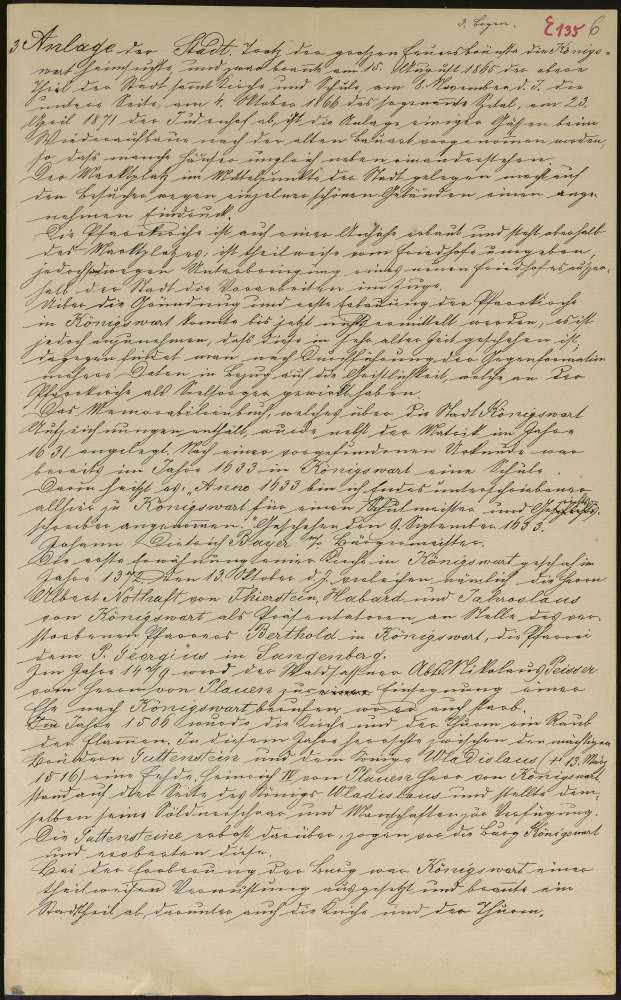 3. Bogen.
E 135 6
3 Anlage der Stadt. Trotz der großen Feuersbrünste die Königs-
wart heimsuchte, und zwar brannte am 15. August 1865 der obere
Theil der Stadt sammt Kirche und Schule, am 8. November d. J. die
untere Seite, am 4. Oktober 1866 das sogenannte Spital, am 23.
April 1871 der Judenhof ab, ist die Anlage einiger Gassen beim
Wiederaufbaue nach der alten Bauart vorgenommen worden,
so daß manche Häuser ungleich neben einanderstehen.
Der Marktplatz im Mittelpunkte der Stadt gelegen macht auf
den Besucher wegen einzelner schönen Gebäuden einen ange-
nehmen Eindruck.
Die Pfarrkirche ist auf einer Anhöhe erbaut und steht oberhalb
des Marktplatzes, ist theilweise vom Friedhofe umgeben,
jedoch wegen Unterbringung eines neuen Friedhofes außer-
halb der Stadt die Vorarbeiten im Zuge.
Über die Gründung und erste Erbauung der Pfarrkirche
in Königswart konnte bis jetzt nicht ermittelt werden, es ist
jedoch anzunehmen, daß diese in sehr alter Zeit geschehen ist,
dagegen findet man nach Durchführung der Gegenreformation
mehrere Daten in Bezug auf die Geistlichkeit, welche an der
Pfarrkirche als Seelsorger gewirkt haben.
Das Memorabilienbuch, welches über die Stadt Königswart
Aufzeichnungen enthält, wurde nebst der Matrik im Jahre
1631 angelegt. Nach einer vorgefundenen Urkunde war
bereits im Jahre 1633 in Königswart eine Schule.
Darin heißt es: „Anno 1633 bin ich Endes unterschriebener
allhier zu Königswart für einen Schulmeister und
schreiber angenomen. Geschehen den 9. September 1633.
Johann Dietrich Bayer Bürgermeister.
Die erste Erwähnung einer Kirche in Königswart geschah im
Jahre den 13. Oktober d. J. verleihen nämlich die Herrn
Albert Nothaft von Thierstein, Habard und Jakroslaus
von Königswart als Präsentatoren an Stelle des ver-
storbenen Pfarrers Berthold in Königswart, die Pfarrei
dem P. Georgius in Sangenberg.
Im Jahre 1479 ward der Waldsassner Abt Nikolaus Peisser
vom Herrn von Plauen zur Einsegnung einer
Ehe nach Königswart berufen, wo er auch starb.
Im Jahre 1506 wurde die Kirche und der Thurm ein Raub
der Flammen. In diesem Jahre herrschte zwischen den mächtigen
Brüdern Guttenstein und dem Könige Wladislaus († 13. März
1516) eine Fehde. Heinrich IV von Plauen Herr von Königswart
stand auf der Seite des Königs Wladislaus und stellte dem-
selben seine Söldnerschaar und Mannschaften zur Verfügung.
Die Guttensteine erbost darüber, zogen vor die Burg Königswart
und eroberten diese.
Bei der Eroberung der Burg war Königswart einer
theilweisen Verwüstung ausgesetzt und brannte ein
Stadttheil ab, darunter auch die Kirche und der Thurm.